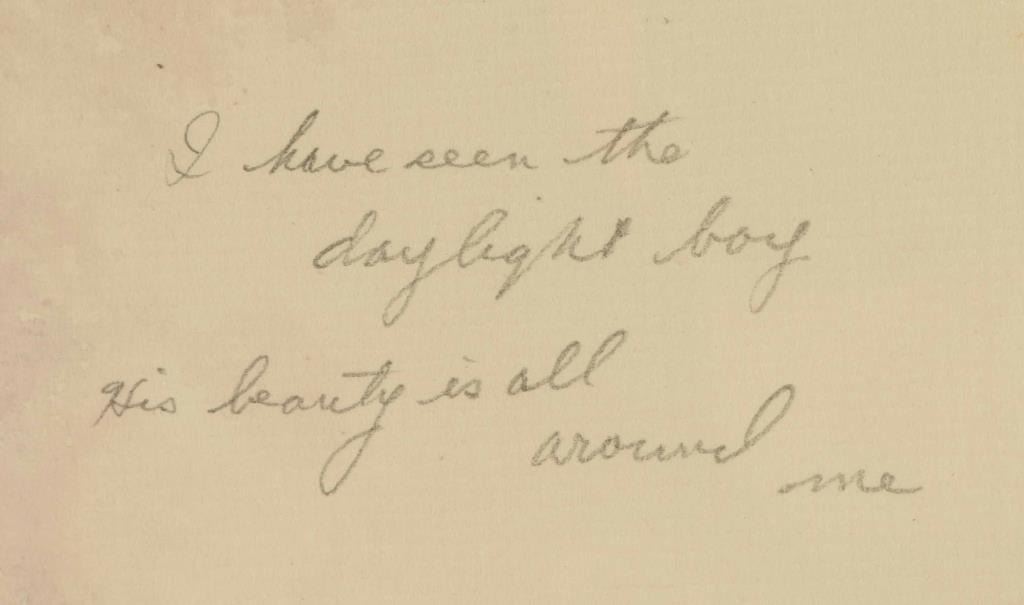 I have seen the
daylight boy
His beauty is all
around
me